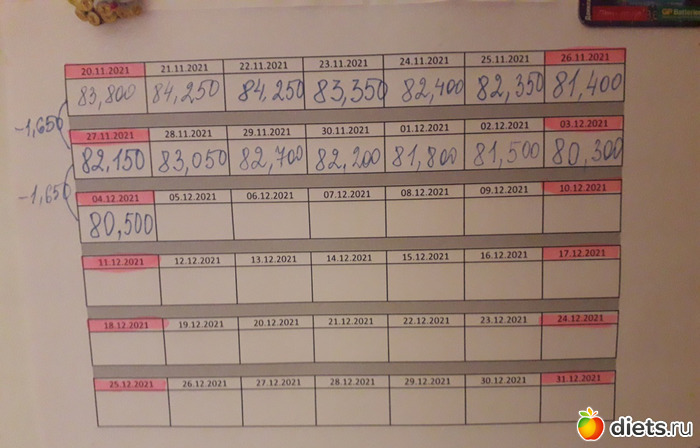 GP Batteries
20.11.2021 21.11.2021 22.11.2021 23.11.2021 24.11.2021 25.11.2021 26.11.2021
83,800 84,250 84,250 83,350 82,400 82,350 81,400
-1,650
27.11.2021 28.11.2021 29.11.2021 30.11.2021 01.12.2021 02.12.2021 03.12.2021
82,150 83,050 82,700 82,200 81,800 81,500 80,300
-1,650
04.12.2021 05.12.2021 06.12.2021 07.12.2021 08.12.2021 09.12.2021 10.12.2021
80,500
11.12.2021 12.12.2021 13.12.2021 14.12.2021 15.12.2021 16.12.2021 17.12.2021
18.12.2021 19.12.2021 20.12.2021 21.12.2021 22.12.2021 23.12.2021 24.12.2021
25.12.2021 26.12.2021 27.12.2021 28.12.2021 29.12.2021 30.12.2021 31.12.2021
diets.ru